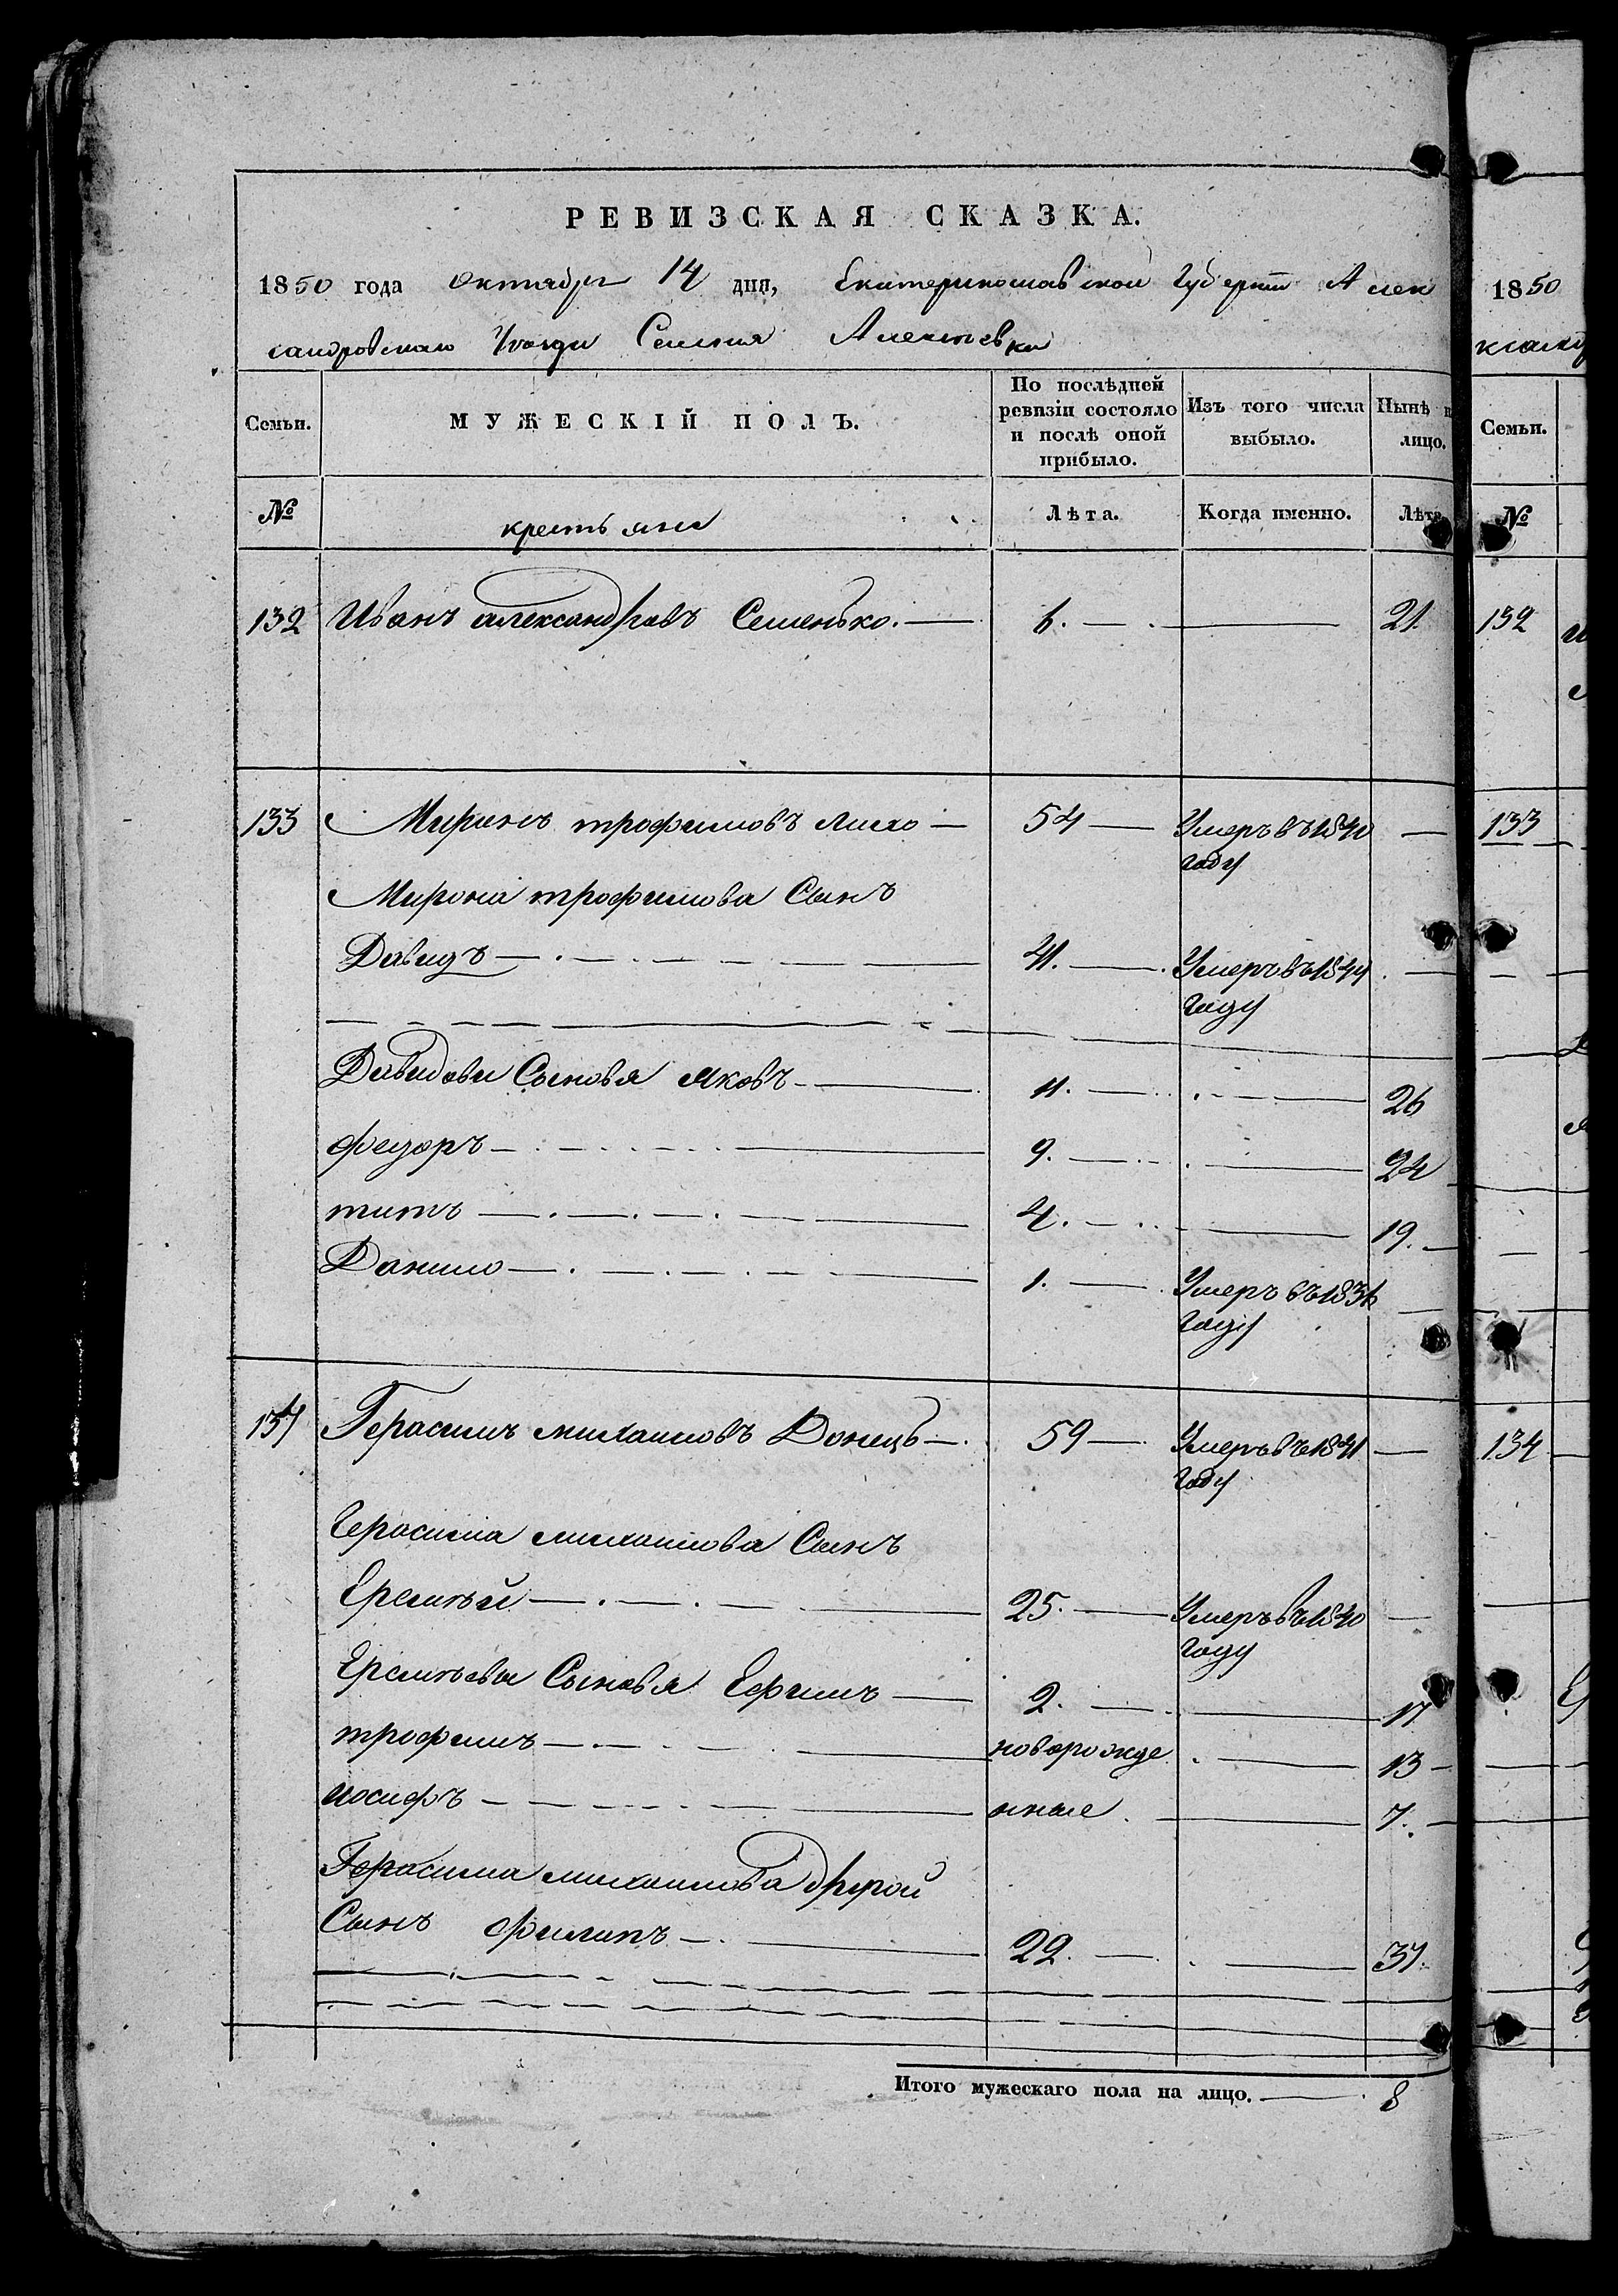 РЕВИЗСКАЯ СКАЗКА.
1850 года октября 14 дня, Екатеринославской Губернии Алек
сандровскаго Уезда Селения Алексеевки
Семьи. МУЖЕСКІЙ ПОЛЪ. По послѣдней ревизіи состояло и послѣ оной прибыло. Изъ того числа выбыло. Нынѣ на лицо.
№ крестьяне Лѣта. Когда именно. Лѣта
132 Иванъ александровъ Семенько. 6. 21.
133 Миронъ трофимовъ 54 Умеръ въ 1840
году
Мирона трофимова Сынъ
Давидъ 41. Умеръ въ 1844
году
Давидовы Сыновья яковъ 11. 26
федоръ 9. 24
титъ 4. 19.
Данило 1. Умеръ въ 1836
году
134 Герасимъ михаиловъ Донецъ 59 Умеръ въ 1841
году
Герасима михаилова Сынъ
Еремѣй 25. Умеръ въ 1840
году
Еремѣевы Сыновья Ефимъ 2. 17
трофимъ новорожде 13
иосифъ нные 7.
Герасима михаилова другой
Сынъ филипъ 22. 37.
Итого мужескаго пола на лицо. 8
1850
Семьи.
№
132
133
134